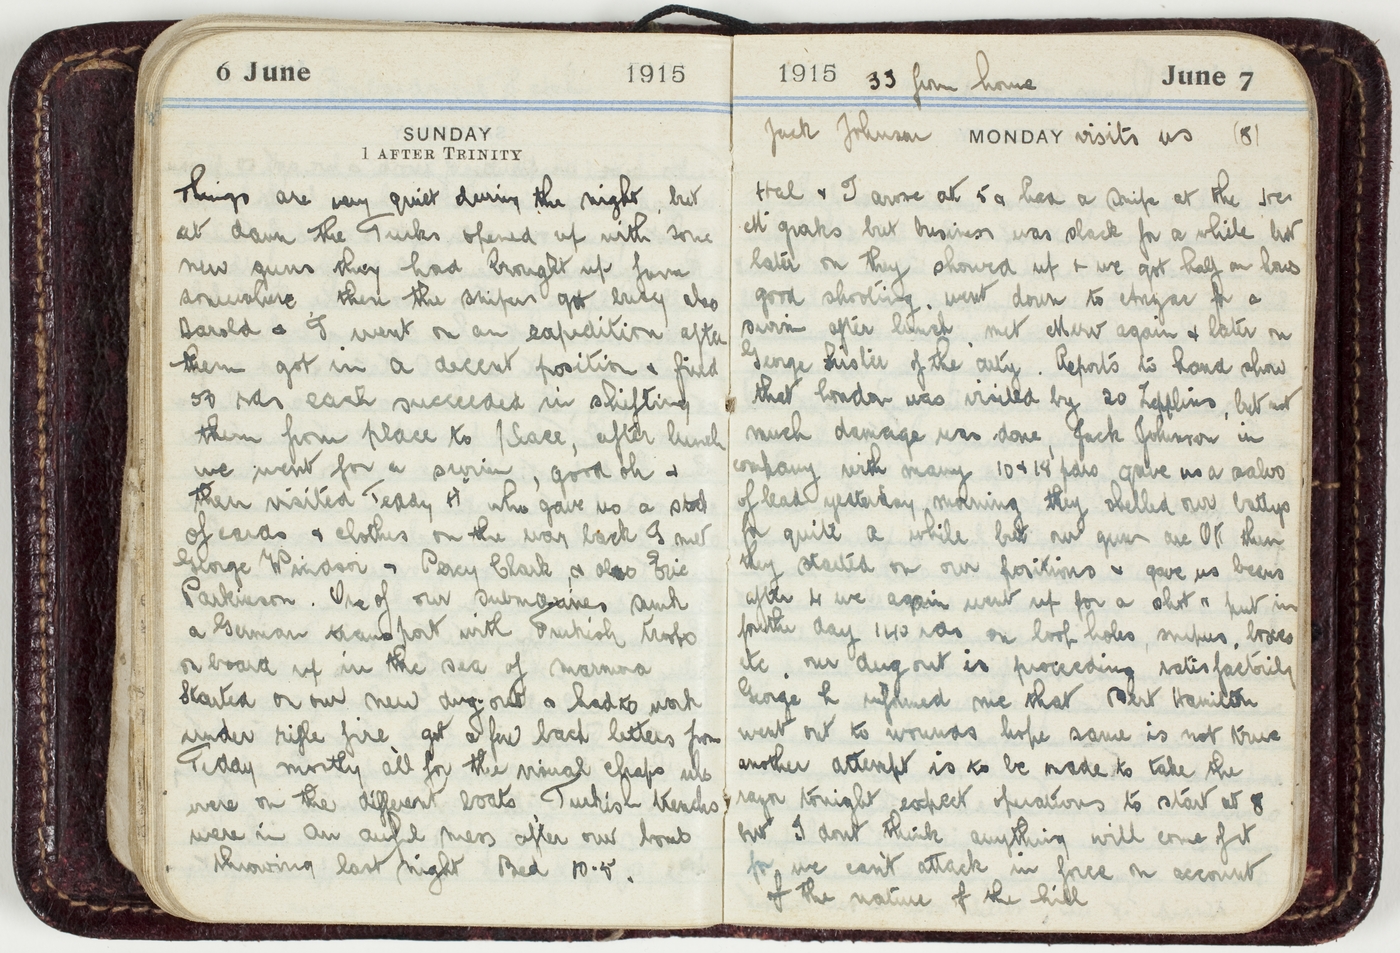 6 June 1915
SUNDAY
1 AFTER TRINITY
Things are very quiet during the night, but
at dawn the Turks opened up with some
new guns they had brought up from
somewhere then the snipers got busy also
Harold & I went on an expedition after
them got in a decent position & fired
50 rds each succeeded in shifting
them from place to place, after lunch
we went for a swim, good oh &
then visited Teddy H who gave us a stock
of cards & clothes on the way back I met
George Windsor & Percy Clark, & also Eric
Parkinson. One of our submarines sunk
a German transport with Turkish troops
on board up in the sea of marmora
Started on our new dug-out & had to work
under rifle fire, got a few back letters from
Teddy mostly all for the visual chaps who
were on the different boats Turkish trenches
were in an awful mess after our bomb
throwing last night Bed 10.5.
1915 33 from home June 7
Jack Johnson MONDAY visits us (8)
Hal & I arose at 5 & had a snipe at the
but business was slack for a while but
later on they showed up & we got half an hours
good shooting. went down to Anzac for a
swim after lunch, met again & later on
George of the arty. Reports to hand show
that London was visited by 20 Zepplins, but not
much damage was done, Jack Johnson in
company with many 10 & 18 pdrs gave us a salvo
of lead yesterday morning they shelled our batterys
for quite a while but our guns are OK then
they started on our positions & gave us beans
after 4 we again went up for a shot & put in
for the day 140 rds on loop holes, snipers, boxes
etc. our dug out is proceeding satisfactorily
George L informed me that Bert Hamilton
went out to wounds hope same is not true
another attempt is to be made to take the
razor tonight expect operations to start at 8
but I dont think anything will come of it
for we cant attack in force on account
of the nature of the hill